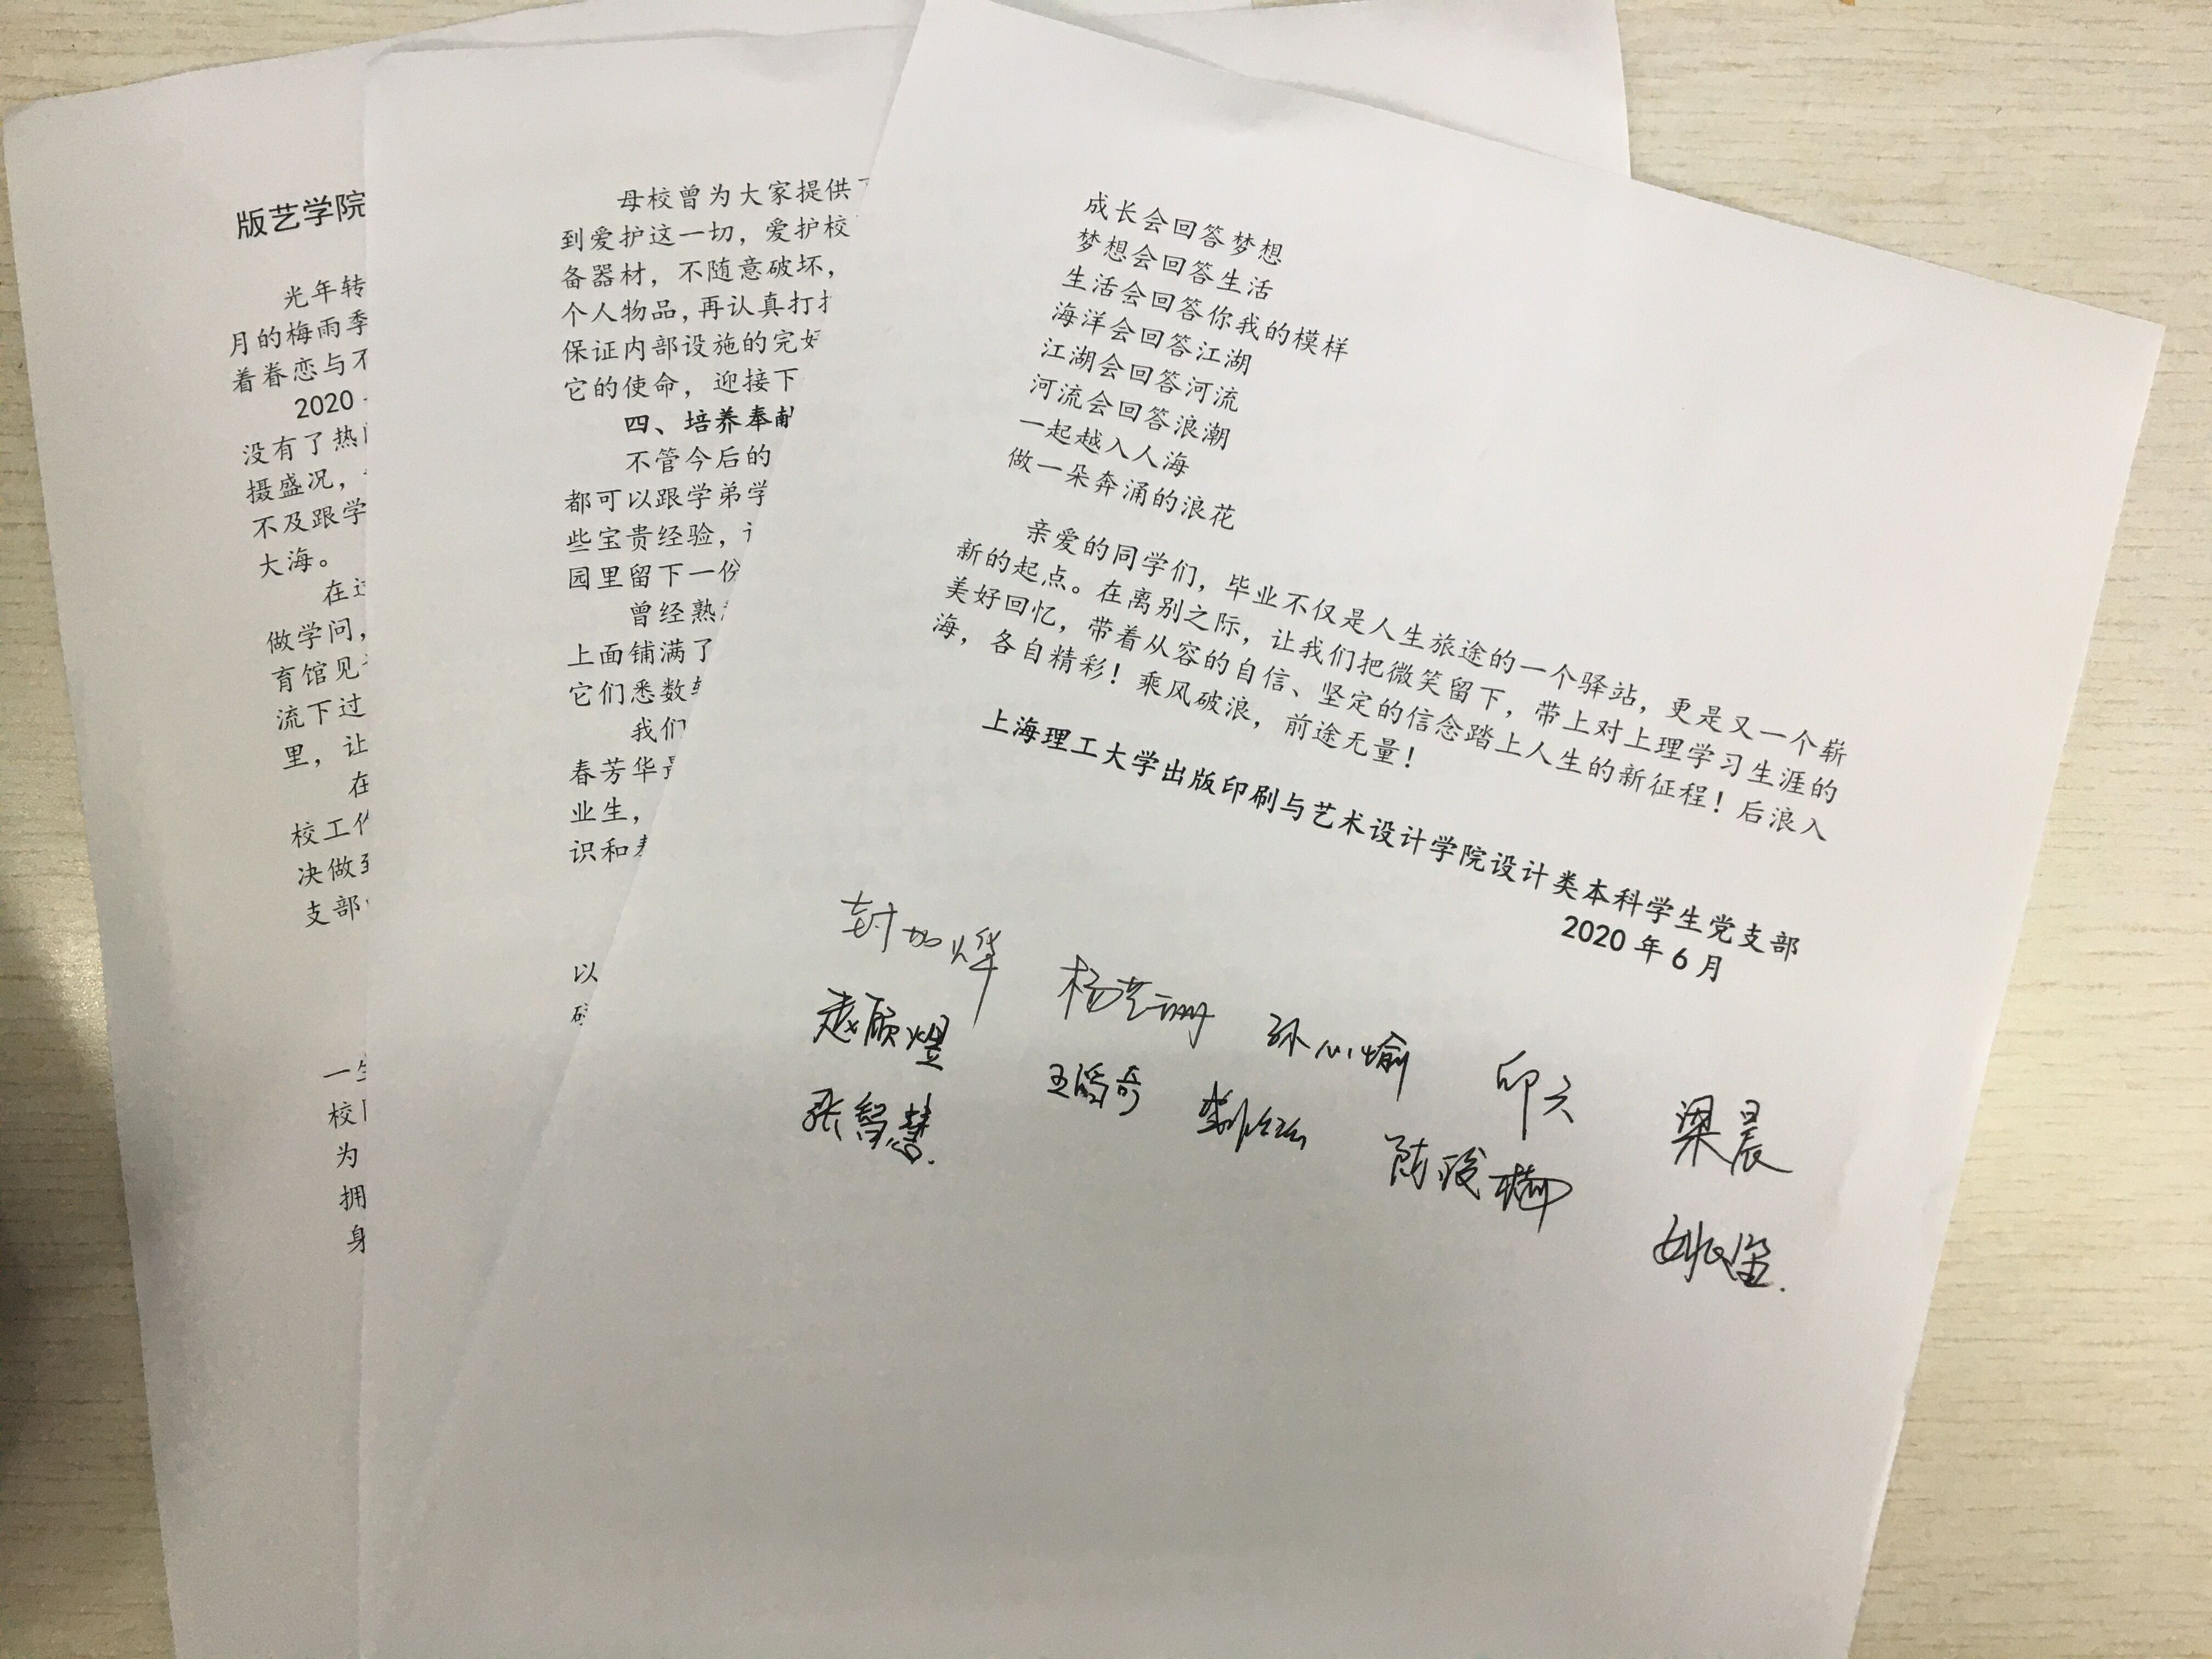 版艺学院
光年转
月的梅雨季
着眷恋与不
2020
没有了热
摄盛况，
不及跟学
大海。
在
做学问，
育馆见
流下过
里，让
在
校工作
决做到
支部
一生
校
为
拥
身
母校曾为大家提供
到爱护这一切，爱护校
备器材，不随意破坏，
个人物品，再认真打扫
保证内部设施的完好
它的使命，迎接下
四、培养奉献
不管今后的
都可以跟学弟学
些宝贵经验，
园里留下一份
曾经熟
上面铺满了
它们悉数
我们
春芳华
业生，
识和
以
成长会回答梦想
梦想会回答生活
生活会回答你我的模样
海洋会回答江湖
江湖会回答河流
河流会回答浪潮
一起越入人海
做一朵奔涌的浪花
亲爱的同学们，毕业不仅是人生旅途的一个驿站，更是又一个崭
新的起点。在离别之际，让我们把微笑留下，带上对上理学习生涯的
美好回忆，带着从容的自信、坚定的信念踏上人生的新征程！后浪入
海，各自精彩！乘风破浪，前途无量！
上海理工大学出版印刷与艺术设计学院设计类本科学生党支部
2020 年 6 月
封加烨 杨芸珊 孙心愉 邱云 梁晨
赵顾煜 王滔奇 陈骏
张智慧